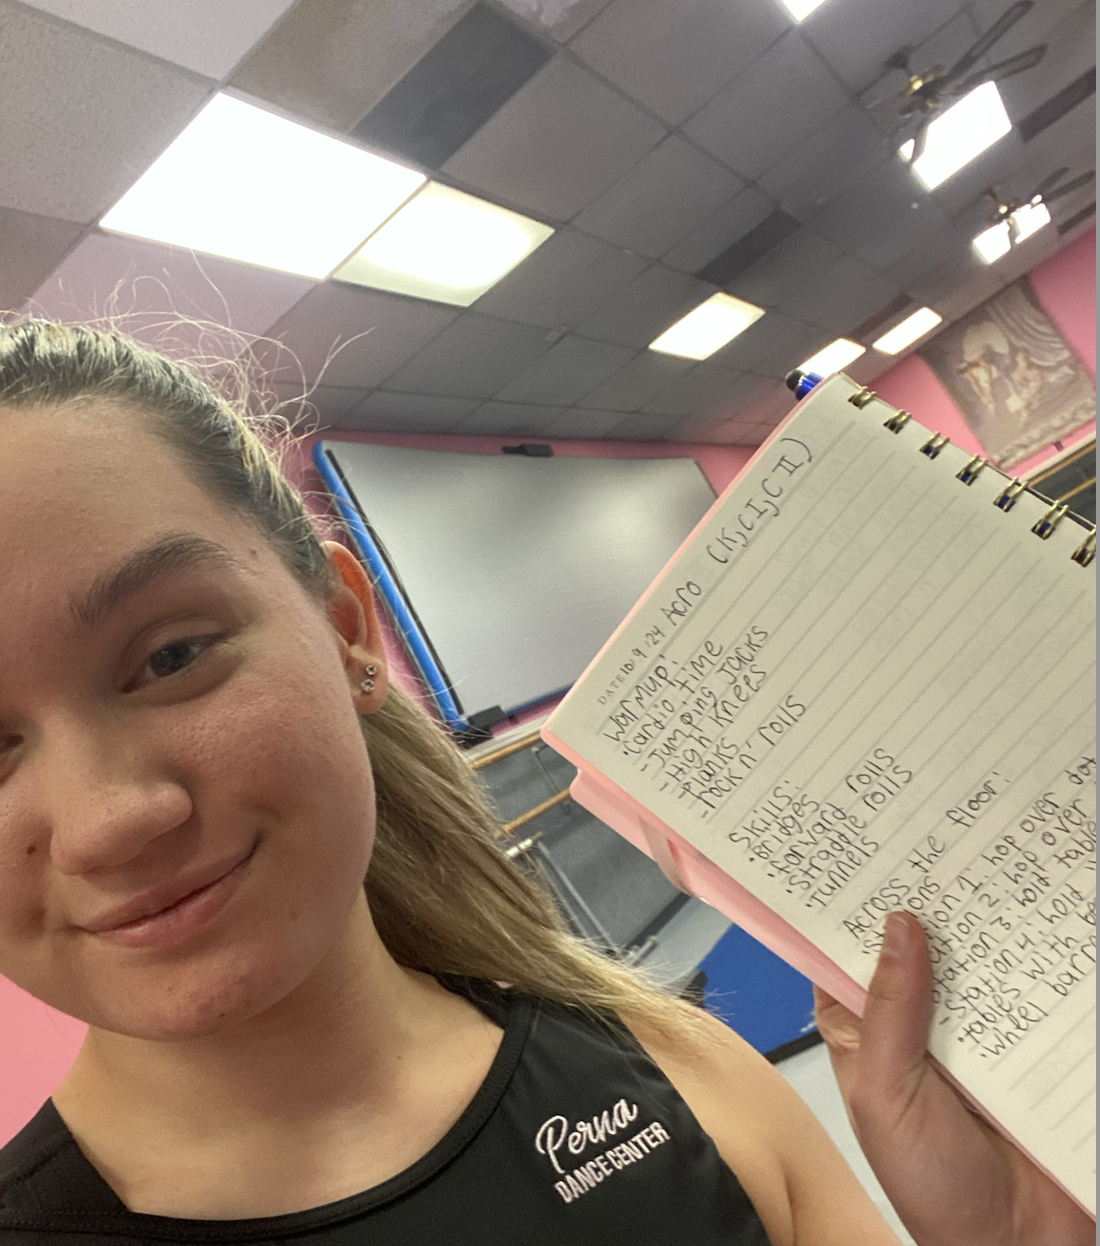 DATE 10/9/24 Acro (CK, CI, CII)
Warmup:
·Cardio time
-Jumping Jacks
-High Knees
-Planks
-rock n' rolls
Skills:
·Bridges
·forward rolls
·Straddle rolls
·Tunnels
Across the floor:
1: hop over dot
2: hop over
Station 3: hold table
-Station 4: hold
·tables with
·Wheel barr
Perna
DANCE CENTER